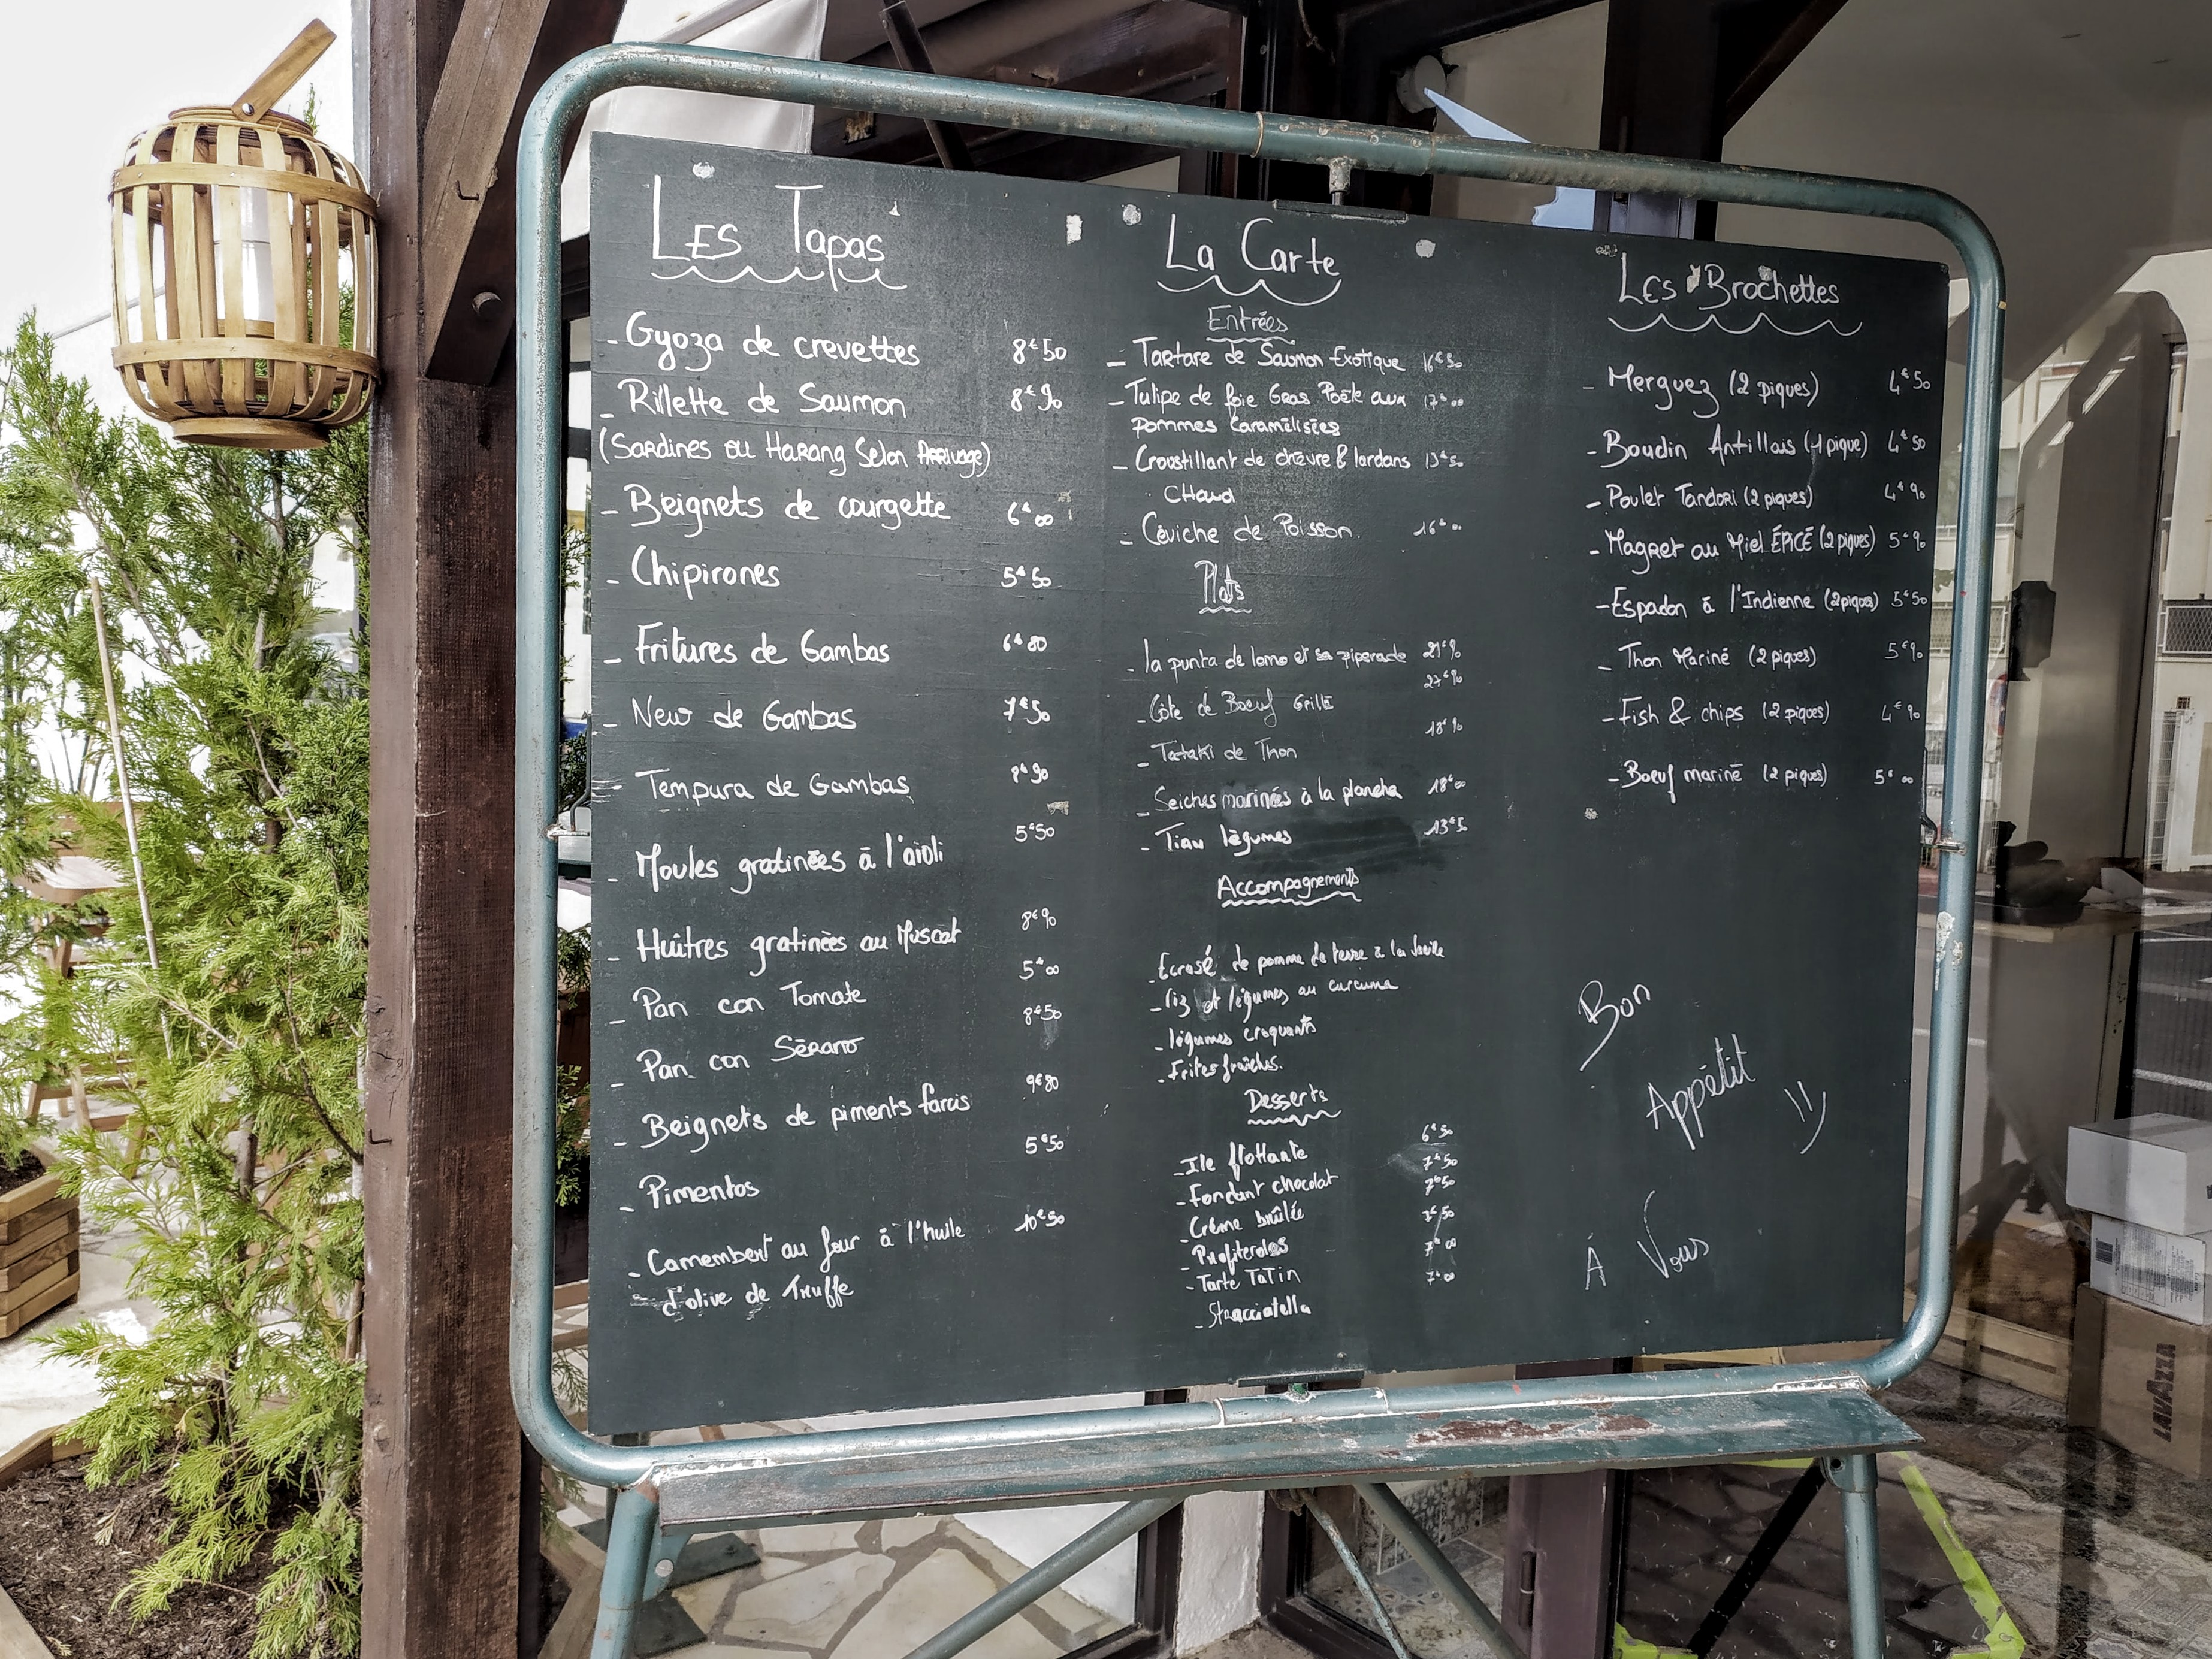 LES Tapas
- Gyoza de crevettes 8€50
- Rillette de Saumon 8€90
(Sardines ou Harang Selon Arrivage)
- Beignets de courgette 6€00
- Chipirones 5€50
- Fritures de Gambas 6€80
- New de Gambas 7€50
- Tempura de Gambas 8€90
- Moules gratinées à l'aïoli 5€50
- Huîtres gratinées au Muscat 8€90
- Pan con Tomate 5€00
- Pan con Sérano 8€50
- Beignets de piments farcis 9€80
- Pimentos 5€50
- Camembert au four à l'huile 10€50
d'olive de Truffe
La Carte
Entrées
- Tartare de Saumon Exotique 16€50
- Tulipe de foie Gras Poêlé aux 17€00
pommes Caramélisées
- Croustillant de chèvre & lardons 13€50
CHaud
- Céviche de Poisson. 16€00
Plats
- la punta de lomo et sa piperade 21€90
- Côte de Boeuf Grillé 27€90
- Tataki de Thon 18€90
- Seiches marinées à la plancha 18€00
- Tian légumes 13€50
Accompagnements
- Ecrasé de pomme de terre à la
- riz et légumes au curcuma
- légumes croquants
- Frites fraîches.
Desserts
- Ile flottante 6€50
- Fondant chocolat 7€50
- Crème brûlée 7€50
- Profiteroles
- Tarte TaTin 7€00
- Stracciatella 7€00
Les Brochettes
- Merguez (2 piques) 4€50
- Boudin Antillais (1 pique) 4€50
- Poulet Tandori (2 piques) 4€90
- Magret au Miel ÉPICÉ (2 piques) 5€90
- Espadon à l'Indienne (2 piques) 5€50
- Thon Mariné (2 piques) 5€90
- Fish & chips (2 piques) 4€90
- Boeuf mariné (2 piques) 5€00
Bon
Appétit
À Vous
LAVAZZA